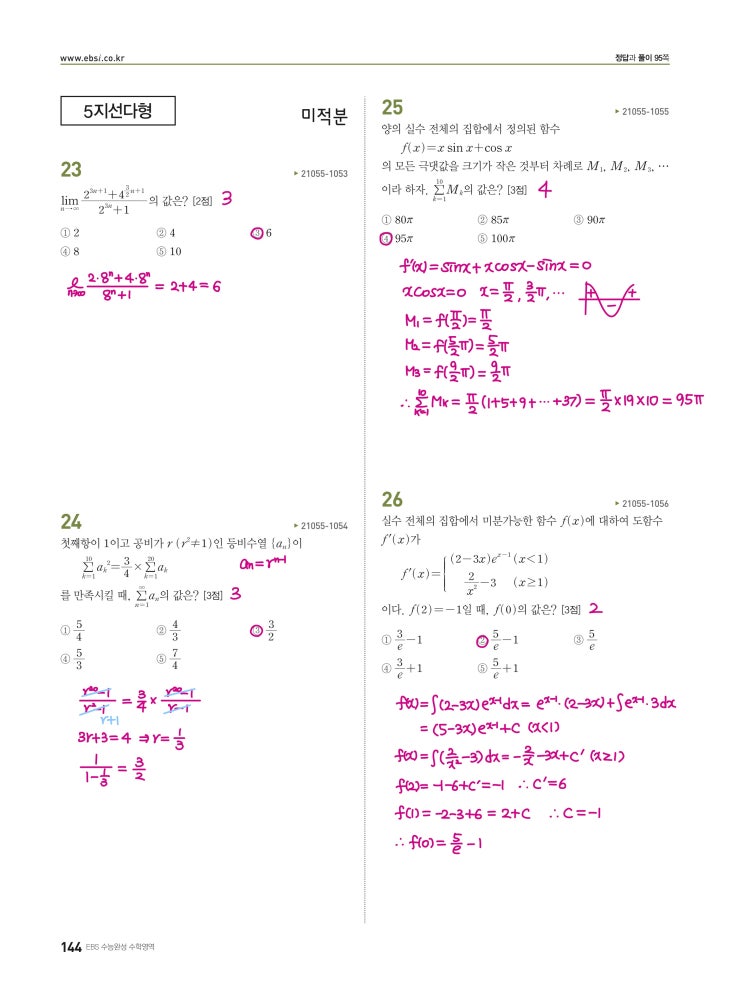 www.ebsi.co.kr
정답과 풀이 95쪽
5지선다형
미적분
23
▶ 21055-1053
lim_{n→∞} (2^{3n+1}+4^{\frac{3}{2}n+1})/(2^{3n}+1) 의 값은? [2점] 3
① 2 ② 4 ③ 6
④ 8 ⑤ 10
ℓ_{n→∞} (2·8ⁿ+4·8ⁿ)/(8ⁿ+1) = 2+4=6
24
▶ 21055-1054
첫째항이 1이고 공비가 r (r²≠1)인 등비수열 {aₙ}이
∑_{k=1}^{10} aₖ² = 3/4 × ∑_{k=1}^{20} aₖ aₙ=rⁿ⁻¹
를 만족시킬 때, ∑_{n=1}^{∞} aₙ의 값은? [3점] 3
① 5/4 ② 4/3 ③ 3/2
④ 5/3 ⑤ 7/4
(r²⁰-1)/(r²-1) = 3/4 × (r²⁰-1)/(r-1)
r+1
3r+3=4 ⇒ r=1/3
1/(1-1/3) = 3/2
25
▶ 21055-1055
양의 실수 전체의 집합에서 정의된 함수
f(x)=x sin x+cos x
의 모든 극댓값을 크기가 작은 것부터 차례로 M₁, M₂, M₃, ⋯
이라 하자. ∑_{k=1}^{10} Mₖ의 값은? [3점] 4
① 80π ② 85π ③ 90π
④ 95π ⑤ 100π
f'(x)=sinx+xcosx-sinx=0
xcosx=0 x=π/2, 3/2π, ⋯ + - +
M₁=f(π/2)=π/2
M₂=f(5/2π)=5/2π
M₃=f(9/2π)=9/2π
∴ ∑_{k=1}^{10} Mₖ = π/2(1+5+9+⋯+37)=π/2×19×10=95π
26
▶ 21055-1056
실수 전체의 집합에서 미분가능한 함수 f(x)에 대하여 도함수
f'(x)가
f'(x)={ (2-3x)e^{x-1} (x<1)
2/x²-3 (x≥1)
이다. f(2)=-1일 때, f(0)의 값은? [3점] 2
① 3/e-1 ② 5/e-1 ③ 5/e
④ 3/e+1 ⑤ 5/e+1
f(x)=∫(2-3x)e^{x-1}dx=e^{x-1}·(2-3x)+∫e^{x-1}·3dx
=(5-3x)e^{x-1}+C (x<1)
f(x)=∫(2/x²-3)dx=-2/x-3x+C' (x≥1)
f(2)=-1-6+C'=-1 ∴ C'=6
f(1)=-2-3+6=2+C ∴ C=-1
∴ f(0)=5/e-1
144 EBS 수능완성 수학영역